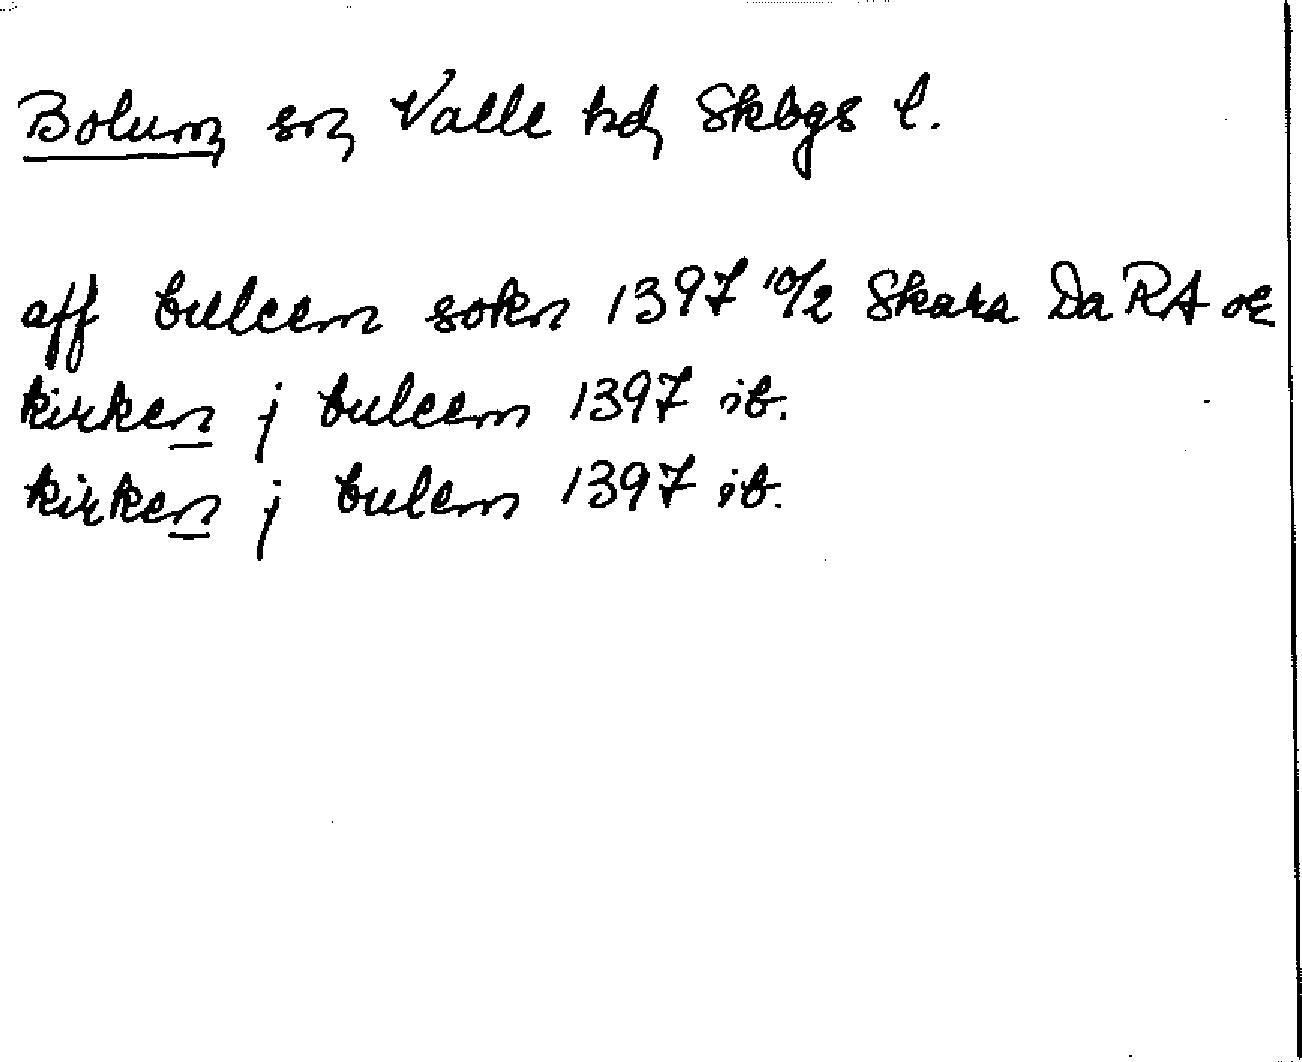 Bolum, sn, Valle hd, Skbgs l.
aff buleem sokn 1397 10/2 Skara Da RA or
kirken j buleem 1397 ib.
kirken j bulem 1397 ib.